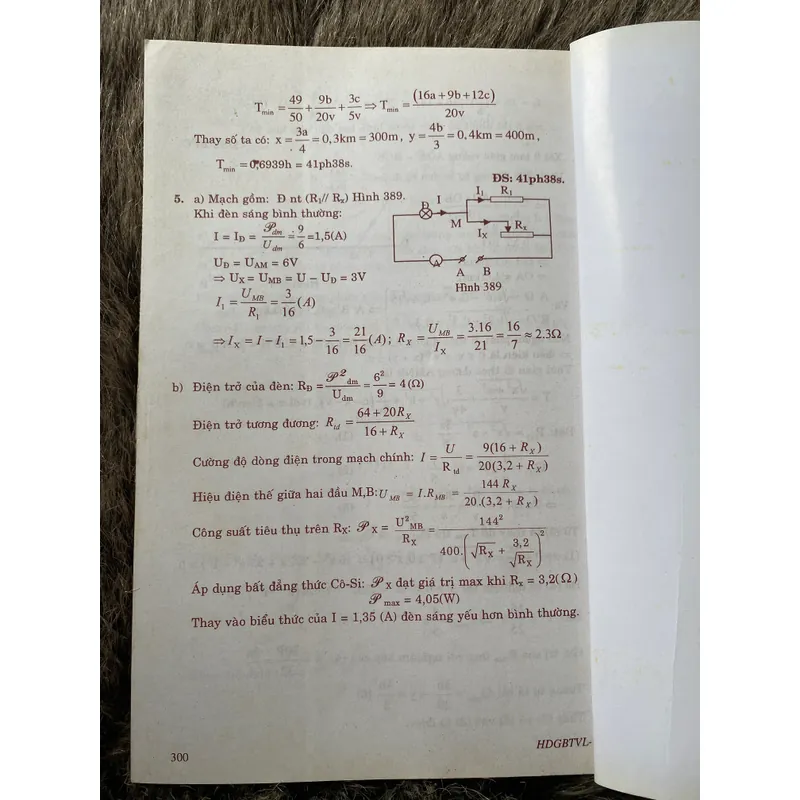 T_min = 49/50 + 9b/20v + 3c/5v ⇒ T_min = (16a + 9b + 12c)/20v
Thay số ta có: x = 3a/4 = 0,3km = 300m, y = 4b/3 = 0,4km = 400m,
T_min = 0,6939h = 41ph38s.
ĐS: 41ph38s.
5. a) Mạch gồm: Đ nt (R₁// Rₓ) Hình 389.
Khi đèn sáng bình thường:
I = I_Đ = 𝒫_đm/U_đm = 9/6 = 1,5(A)
U_Đ = U_AM = 6V
⇒ U_X = U_MB = U – U_Đ = 3V
I₁ = U_MB/R₁ = 3/16 (A)
Đ I I₁ R₁
M I_X Rₓ
A A B
Hình 389
⇒ I_X = I – I₁ = 1,5 – 3/16 = 21/16 (A); R_X = U_MB/I_X = 3.16/21 = 16/7 ≈ 2.3Ω
b) Điện trở của đèn: R_Đ = 𝒫²_đm/U_đm = 6²/9 = 4 (Ω)
Điện trở tương đương: R_tđ = (64 + 20R_X)/(16 + R_X)
Cường độ dòng điện trong mạch chính: I = U/R_tđ = 9(16 + R_X)/20(3,2 + R_X)
Hiệu điện thế giữa hai đầu M,B: U_MB = I.R_MB = 144 R_X/20.(3,2 + R_X)
Công suất tiêu thụ trên R_X: 𝒫_X = U²_MB/R_X = 144²/400.(√R_X + 3,2/√R_X)²
Áp dụng bất đẳng thức Cô-Si: 𝒫_X đạt giá trị max khi Rₓ = 3,2(Ω)
𝒫_max = 4,05(W)
Thay vào biểu thức của I = 1,35 (A) đèn sáng yếu hơn bình thường.
300
HDGBTVL-